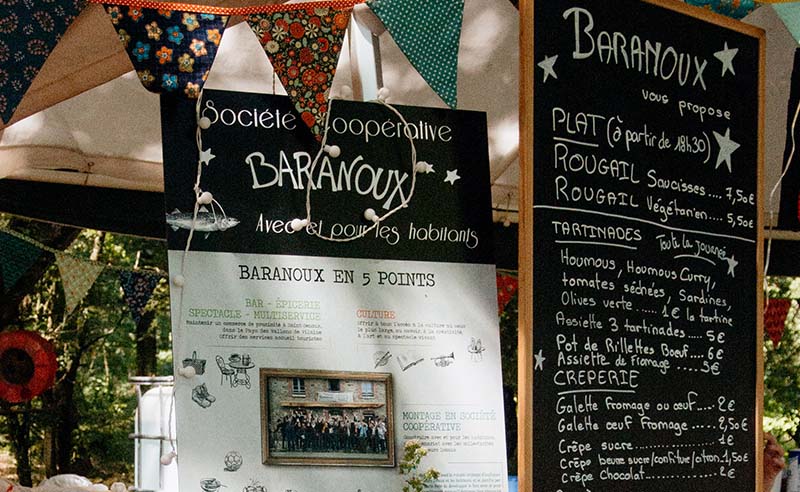 Société Coopérative
BARANOUX
Avec et pour les habitants
BARANOUX EN 5 POINTS
BAR - ÉPICERIE
SPECTACLE - MULTISERVICE
Maintenir un commerce de proximité à Saint-Senoux,
dans le Pays des Vallons de Vilaine
Offrir des services accueil touristes
CULTURE
Offrir à l'accès à la culture au sens
le plus large, au savoir, à la créativité
à l'art et au spectacle vivant
MONTAGE EN SOCIÉTÉ
COOPÉRATIVE
BARANOUX
vous propose
PLAT (à partir de 18h30)
ROUGAIL Saucisses.... 7,50€
ROUGAIL Végétarien.... 5,50€
TARTINADES Toute la journée
Houmous, Houmous Curry,
tomates séchées, Sardines,
Olives verte ..... 1€ la tartine
Assiette 3 tartinades..... 5€
Pot de Rillettes Boeuf.... 6€
Assiette de fromage .... 5€
CREPERIE
Galette fromage ou œuf.... 2€
Galette oeuf fromage..... 2,50€
Crêpe sucre ............ 1€
Crêpe beurre sucre/confiture/citron 1,50€
Crêpe Chocolat........ 2€